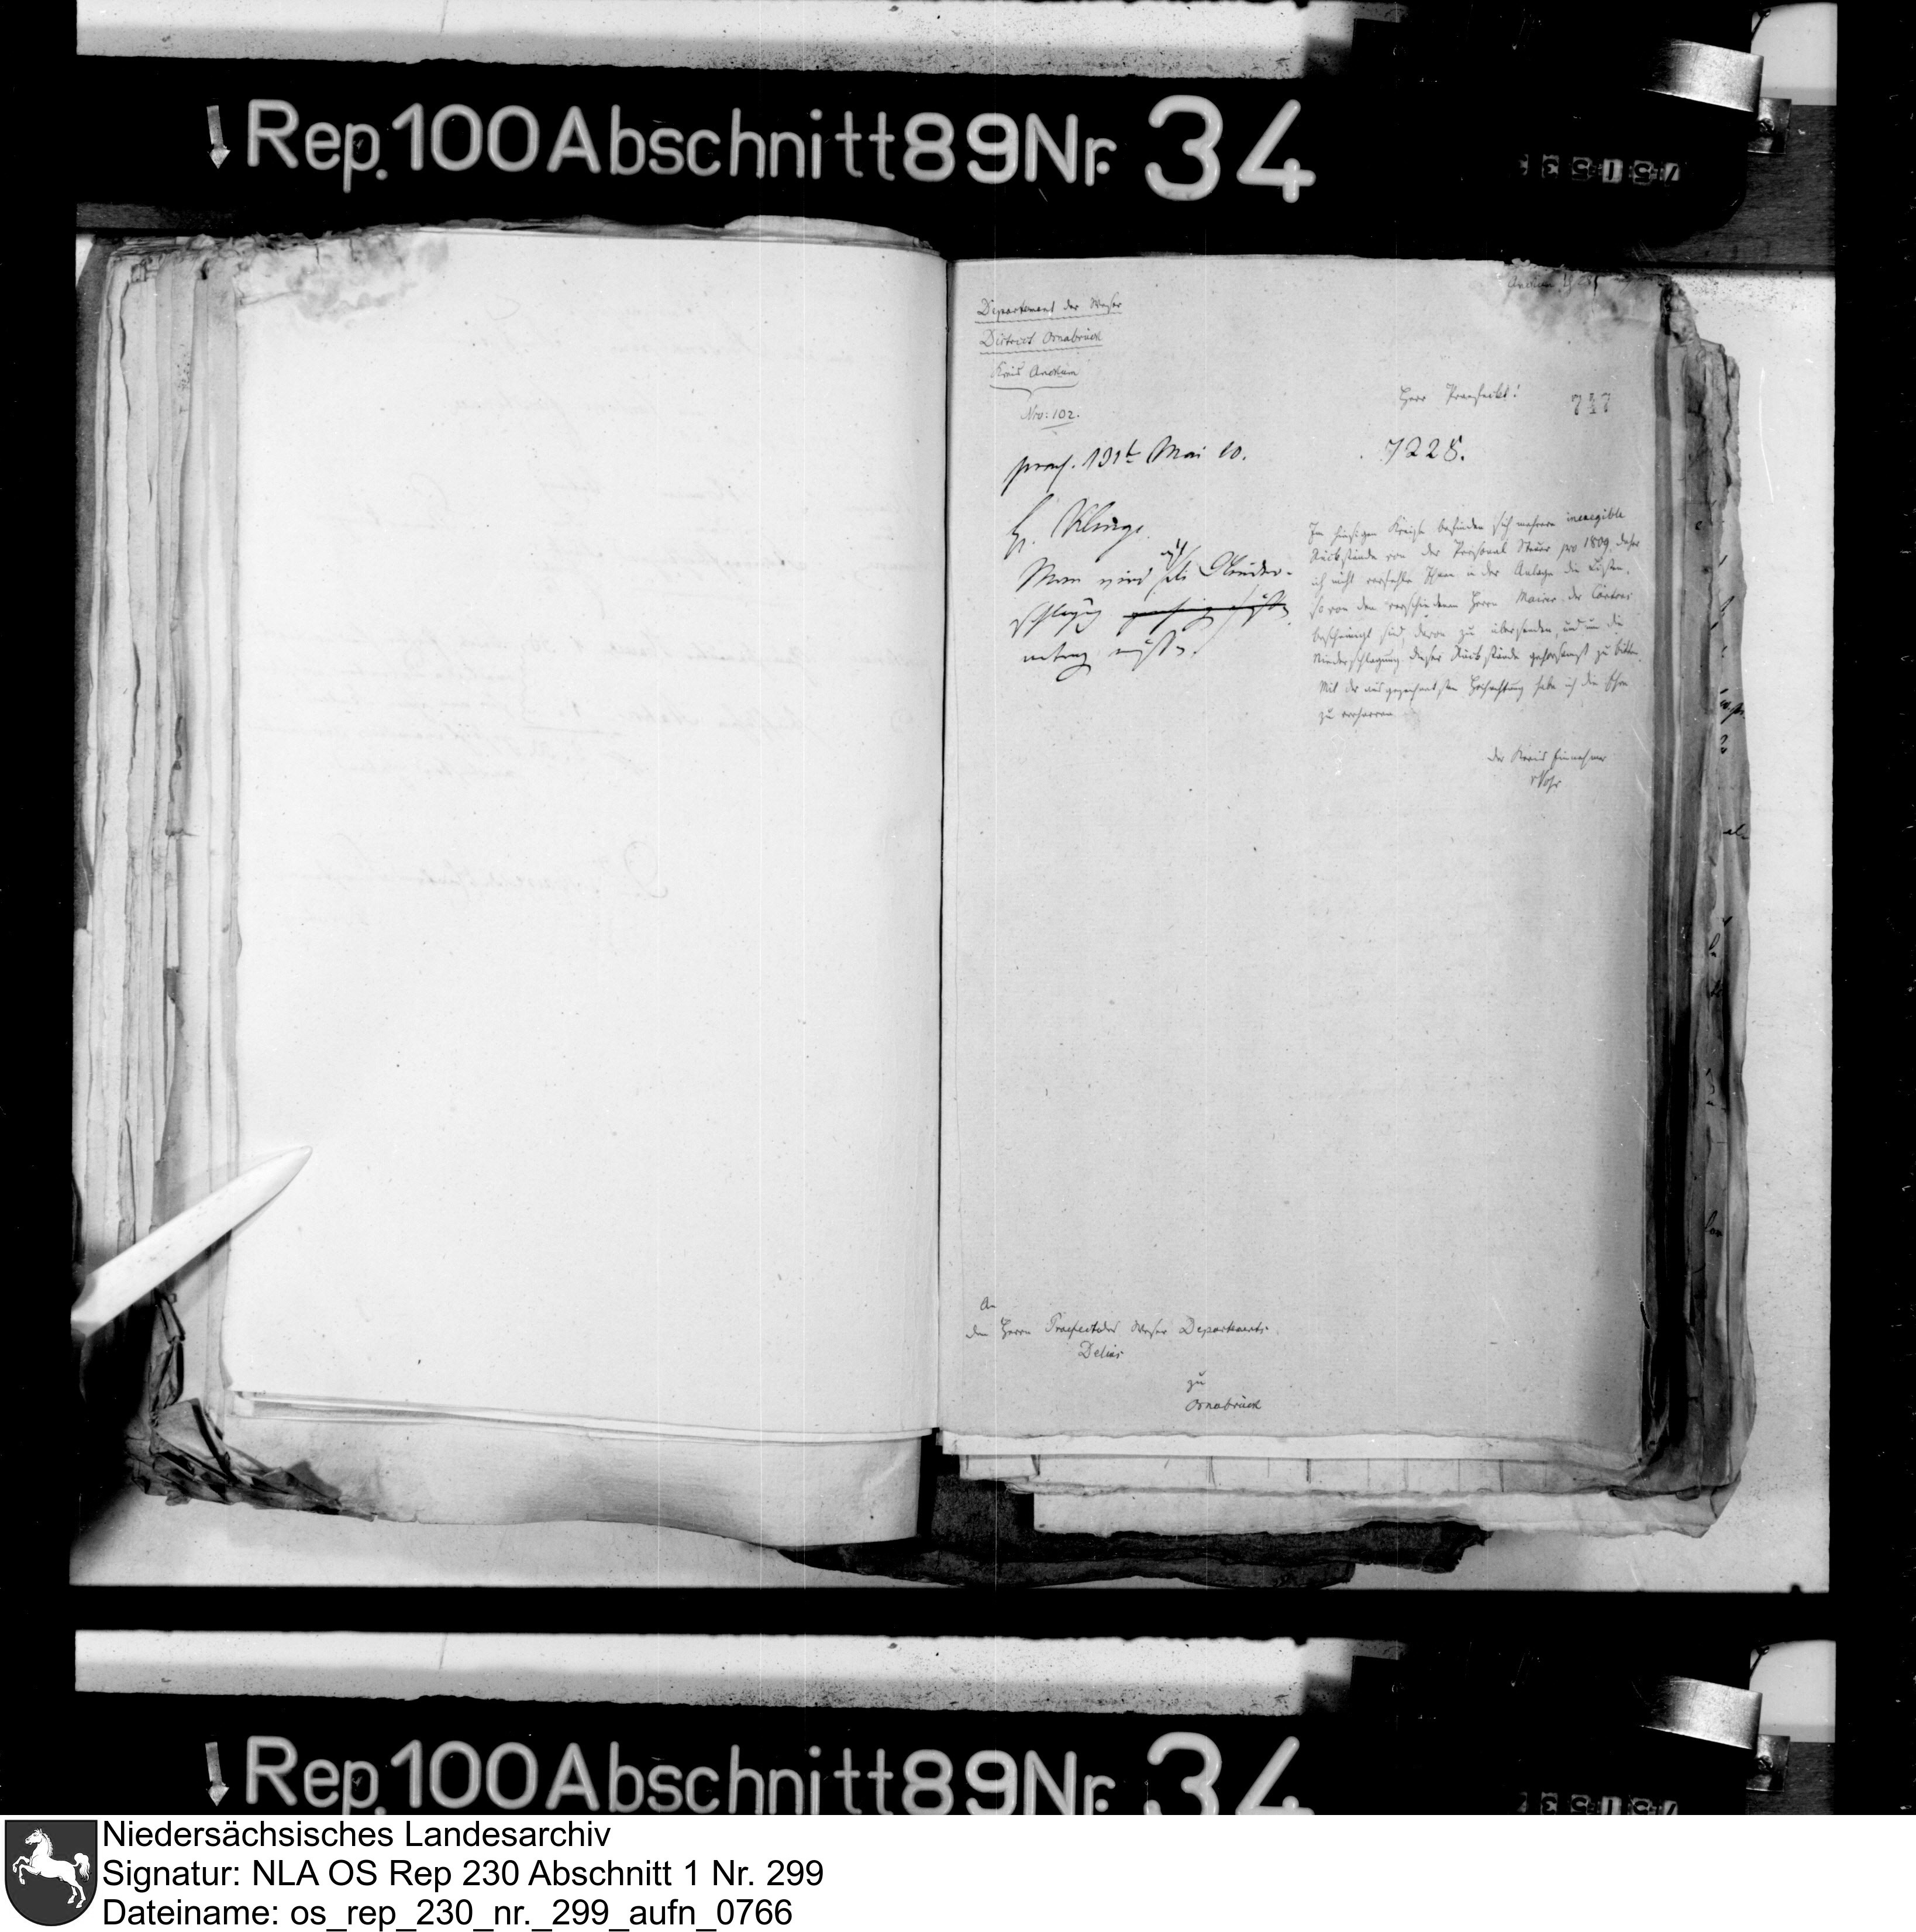 Rep. 100 Abschnitt 89 Nr. 34
Departement der Weser
District Osnabrück
Kreis Anckum
Nro: 102.
Herr Praefeckt!
praes. 13t Mai 10.
7228.
H. Klinge.
Man wird
Im hiesigen Kreise befinden sich mehrere inexigible
Rückstände von der Personal Steuer pro 1809, daher
ich nicht verfehle Ihnen in der Anlage die Listen,
so von den verschiedenen Herrn Mairer der Cantons
bescheinigt sind, davon zu übersenden, und um die
Niederschlagung dieser Rückstände gehorsamst zu bitten.
Mit der ausgezeichnetsten Hochachtung habe ich die Ehre
zu verharren
Der Kreis Einnehmer
An
den Herrn Praefect des Weser Departements
Delius
zu
Osnabrück
Rep. 100 Abschnitt 89 Nr. 34
Niedersächsisches Landesarchiv
Signatur: NLA OS Rep 230 Abschnitt 1 Nr. 299
Dateiname: os_rep_230_nr._299_aufn_0766